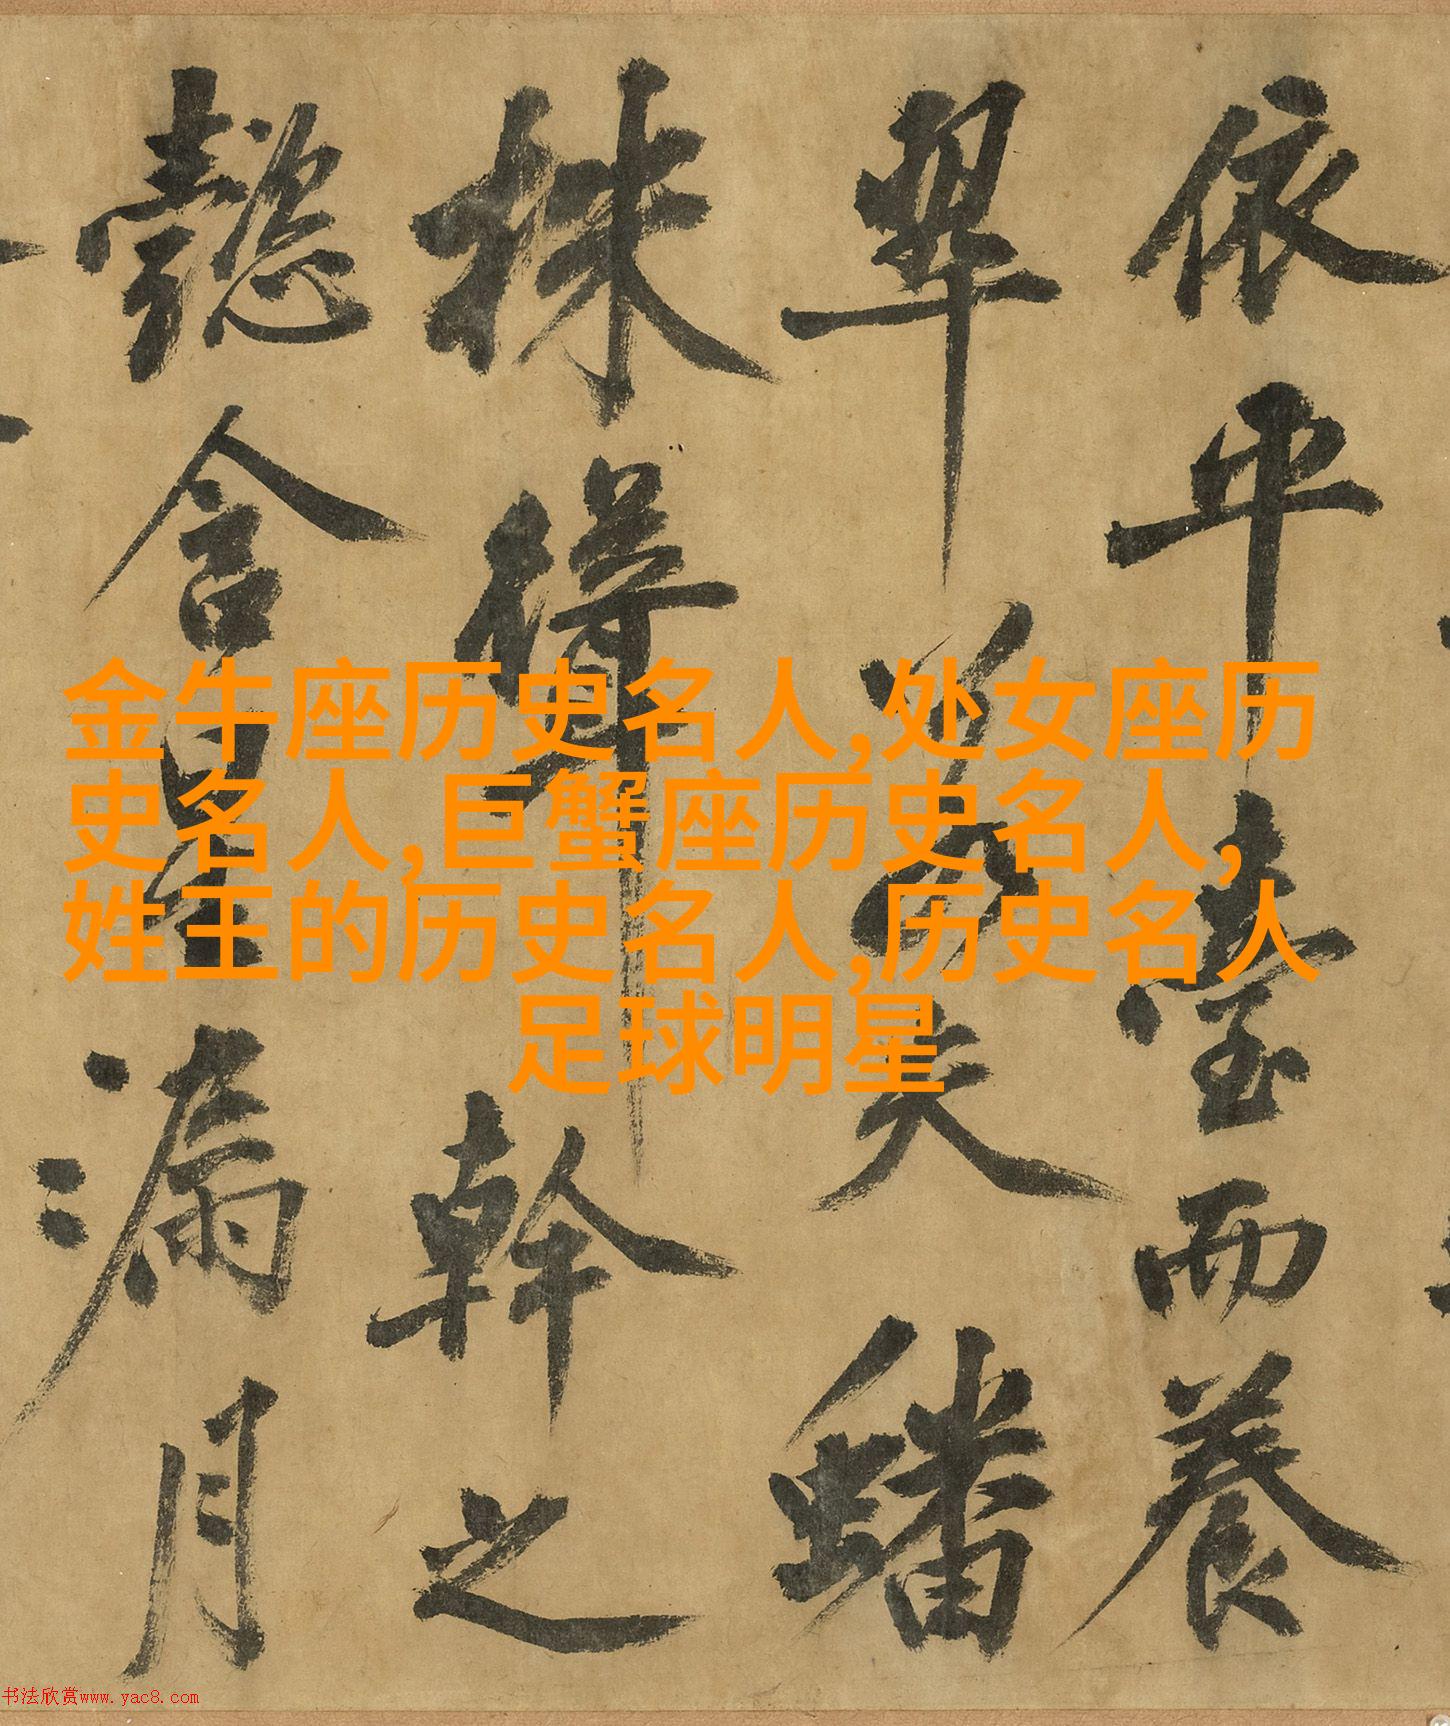 依平臺而養
翠若夫蟠
株聳幹之
懿含星漏月
金牛座历史名人,处女座历
史名人,巨蟹座历史名人,
姓王的历史名人,历史名人
足球明星
书法欣赏www.yac8.com